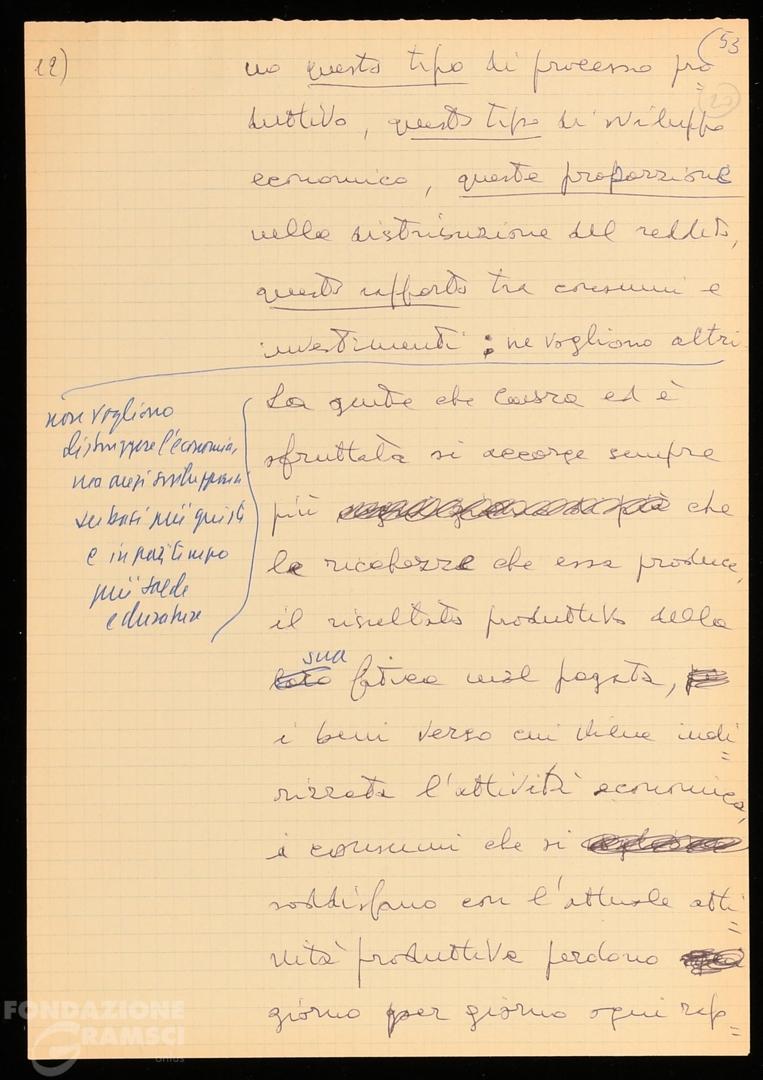 12)
(53
(20)
no questo tipo di processo pro=
duttivo, questo tipo di sviluppo
economico, questa proporzione
nella distribuzione del reddito,
questo rapporto tra consumi e
investimenti: ne vogliono altri.
non vogliono
distruggere l'economia,
ma anzi svilupparla
su basi più giuste
e in pari tempo
più salde
e durature
La gente che lavora ed è
sfruttata si accorge sempre
più che
la ricchezza che essa produce,
il risultato produttivo della
sua fatica mal pagata,
i beni verso cui viene indi=
rizzata l'attività economica,
i consumi che si
soddisfano con l'attuale atti=
vità produttiva perdono
giorno per giorno ogni rap=
FONDAZIONE
GRAMSCI
onlus